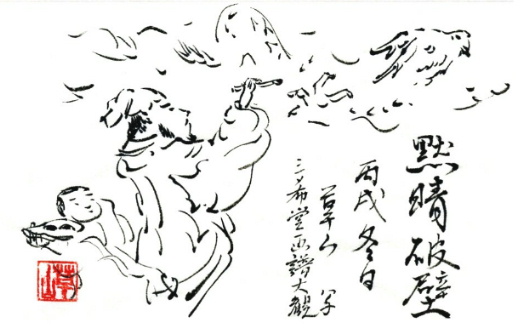 點睛破壁
丙戌冬日
草山
三希堂画譜大観
草山